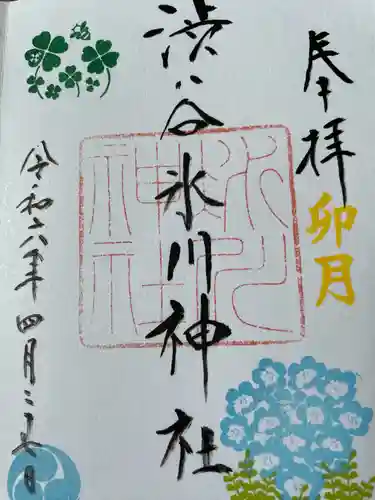 奉拝
卯月
渋谷氷川神社
令和六年四月二十七日